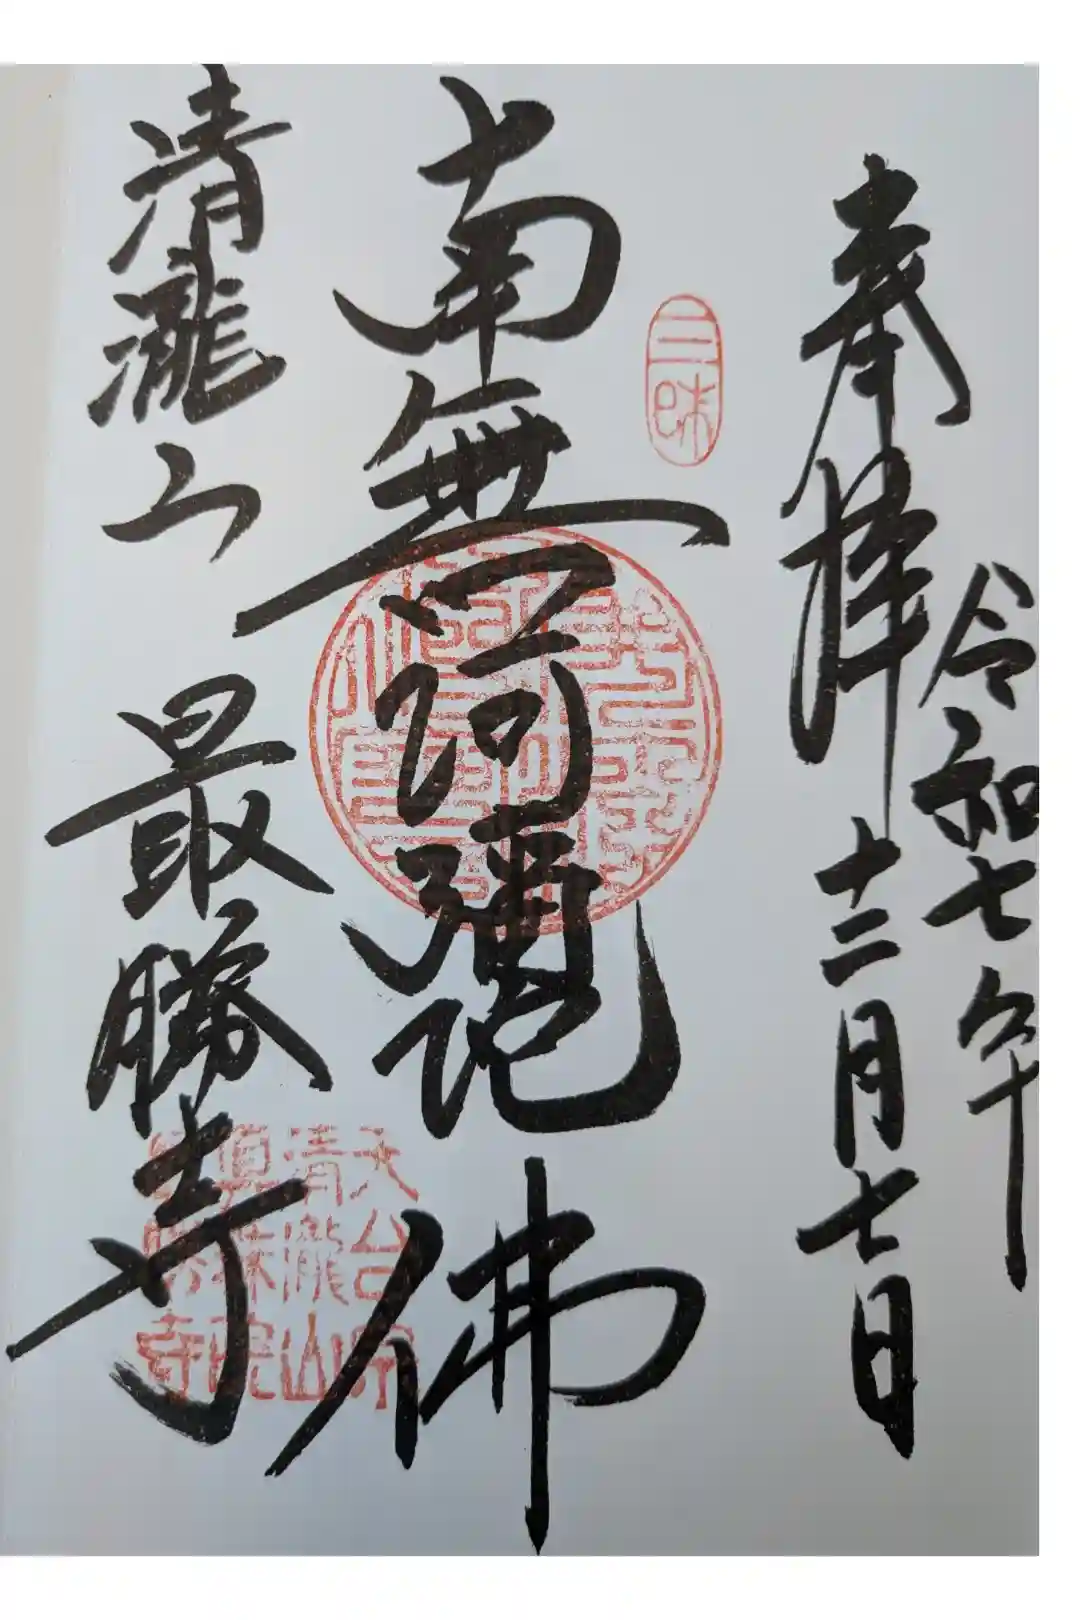 奉拝
令和七年
十二月七日
三昧
南無阿彌陀佛
清瀧山
最勝寺
天台宗
清瀧山
寺